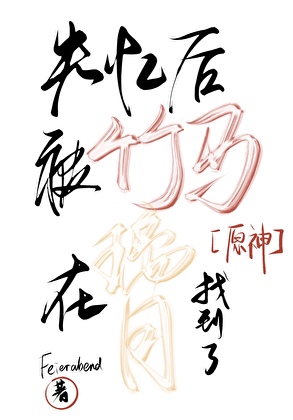 失忆后
被竹马
[原神]
在璃月
找到了
Feierabend
著